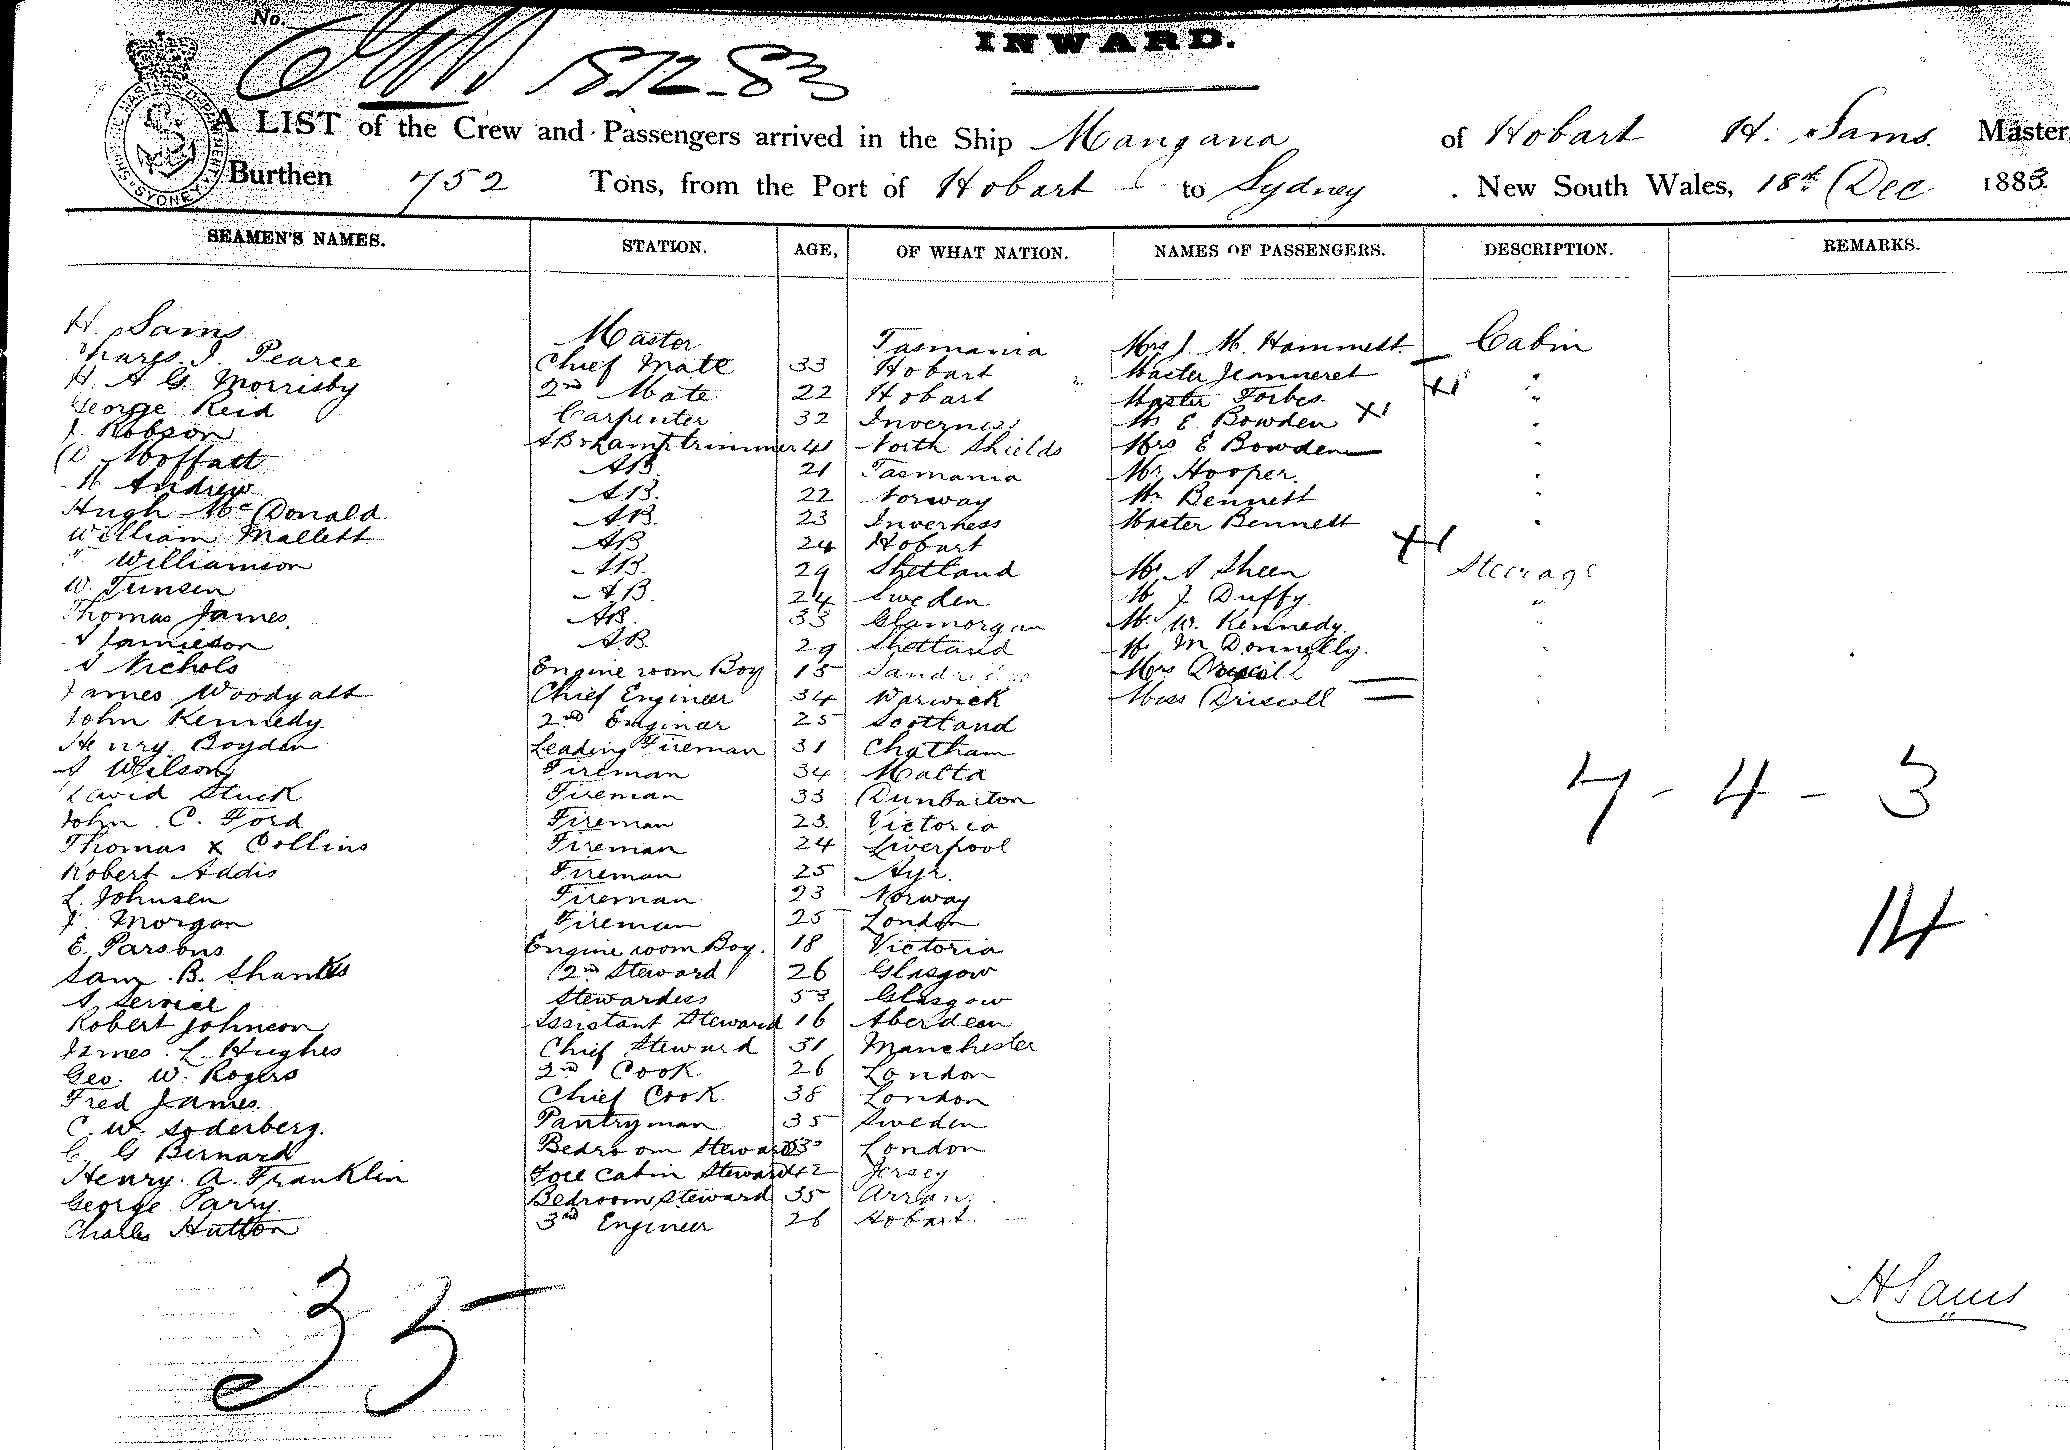 No.
18.12.83
INWARD.
A LIST of the Crew and Passengers arrived in the Ship Mangana of Hobart H. Sams. Master
Burthen 752 Tons, from the Port of Hobart to Sydney . New South Wales, 18th Dec 1883.
SEAMEN'S NAMES. STATION. AGE, OF WHAT NATION. NAMES OF PASSENGERS. DESCRIPTION. REMARKS.
H. Sams Master Tasmania Mrs J. M. Hammett Cabin
Charles J. Pearce Chief Mate 33 Hobart Master Jeanneret "
H. A. G. Morrisby 2nd Mate 22 Hobart Master Forbes "
George Reid Carpenter 32 Inverness Mr E Bowden "
J Robson AB & Lamptrimmer 41 North Shields Mrs E Bowden "
D Moffatt AB 21 Tasmania Mr Hooper. "
Andrew AB. 22 Norway Mr Bennett "
Hugh McDonald AB. 23 Inverness Master Bennett "
William Mallett AB 24 Hobart
" Williamson AB. 29 Shetland Mr A Sheen Steerage
W. Junsen AB. 24 Sweden Mr J Duffy "
Thomas James. AB. 33 Glamorgan Mr W. Kennedy "
Jamieson AB. 29 Shetland Mr M Donnelly. "
Nichols Engine room Boy 15 Mrs Driscoll "
James Woodyatt Chief Engineer 34 Warwick Miss Driscoll "
John Kennedy 2nd Enginer 25 Scotland
Henry Boyden Leading Fireman 31 Chatham
Wilson Fireman 34 Malta
David Stuck Fireman 33 Dunbarton
7 - 4 - 3
John C. Ford Fireman 23 Victoria
Thomas x Collins Fireman 24 Liverpool
Robert Addis Fireman 25 Ayr.
L. Johnsen Fireman 23 Norway
J. Morgan Fireman 25 London
14
E. Parsons Engine room Boy. 18 Victoria
Sam. B. Shanks 2nd Steward 26 Glasgow
Service Stewardess 53 Glasgow
Robert Johnson Assistant Steward 16 Aberdeen
James. L. Hughes Chief Steward 31 Manchester
Geo. W. Rogers 2nd Cook 26 London
Fred James. Chief Cook. 38 London
C. W. Soderberg. Pantryman 35 Sweden
G Bernard Bedroom Steward London
Henry. A. Franklin Fore Cabin Steward 42 Jersey
George Parry. Bedroom Steward 35 Arran.
Charles Hutton 3rd Engineer 26 Hobart.
35
H Sams